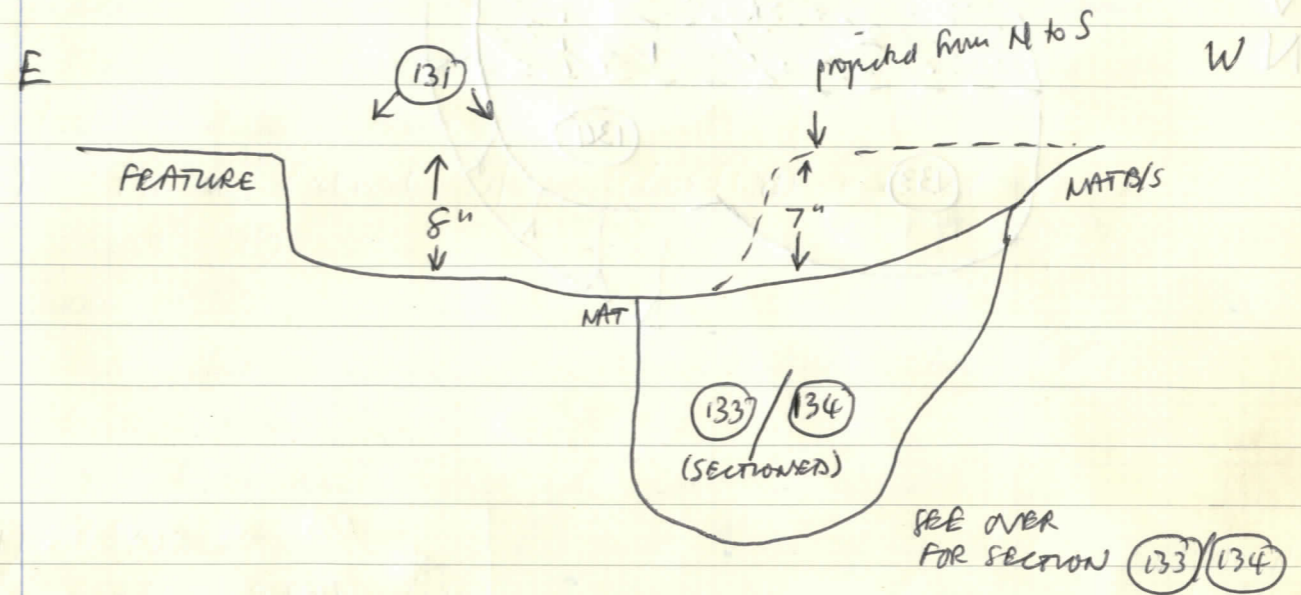 projected from N to S
E
131
W
FEATURE
8"
7"
NAT B/S
NAT
133 / 134
(SECTIONED)
SEE OVER
FOR SECTION 133/134